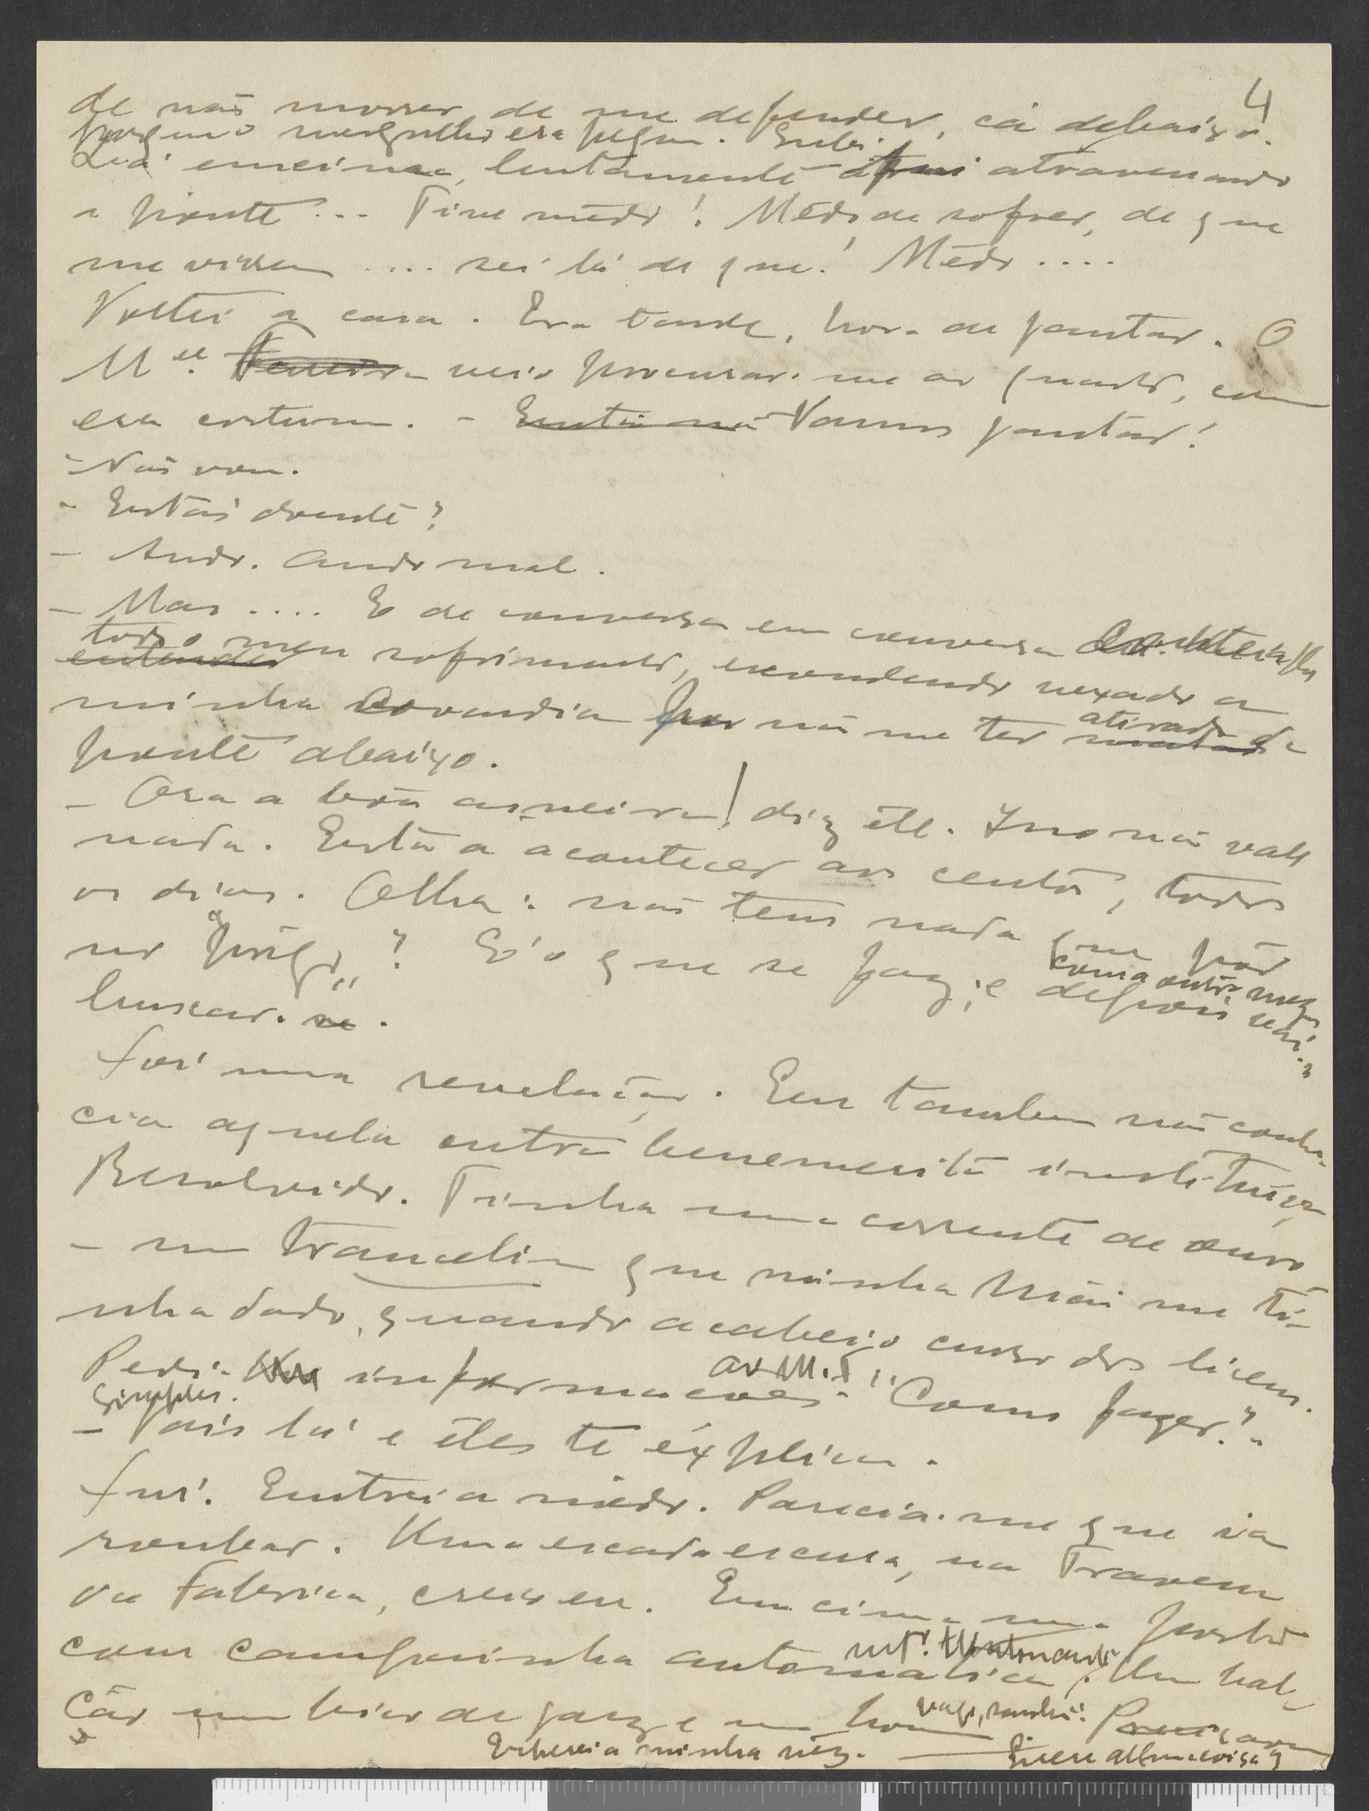 4
de não morrer de me defender, cá debaixo.
porque o mergulho era Subi
Lá em cima, lentamente atravessando
a ponte... Tive mêdo! Mêdo de sofrer, de que
me vissem .... sei lá de que! Mêdo....
Voltei a casa. Era tarde, hora de jantar. O
M.el Ferreira veio procurar-me ao quarto, como
era costume. - Então não Vamos jantar!
- Não vou.
- Estás doente?
- Ando. Ando mal.
- Mas .... E de conversa em conversa
todo o meu sofrimento, escondendo vexado a
entender
minha covardia por não me ter atirado da
ponte abaixo.
- Ora a bôa asneira! diz êle. Isso não vale
nada. Está a acontecer aos centos, todos
os dias. Olha: não tens nada que pôr
no "prégo"? E' o que se faz; e depois vai-
buscar-se.
Foi uma revelação. Eu tambem não conhe-
cia aquela outra benemerita instituição
Resolvido. Tinha uma corrente de ouro
- um trancelim que minha Mãi me ti-
nha dado, quando acabei o curso dos liceus.
Pedi informações ao M. F.: "Como fazer?"
simples.
- Vais lá e êles te explicam.
Fui. Entrei a mêdo. Parecia-me que ia
roubar. Uma escada escura, na Travessa
da Fabrica, creio eu. Em cima uma porta
com campainha automatica. Um bal-
cão um bico de gaz e um
Esperei a minha vez. Quere alguma coisa